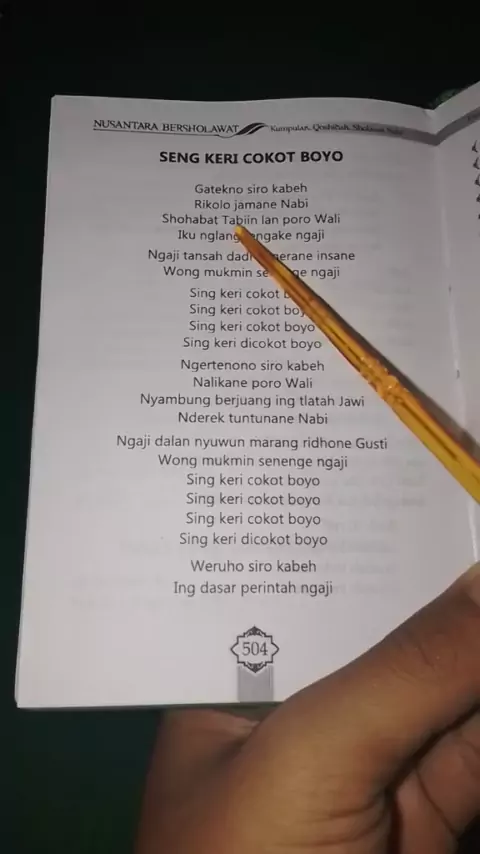 NUSANTARA BERSHOLAWAT Kumpulan Qoshidah, Sholawat Nabi
SENG KERI COKOT BOYO
Gatekno siro kabeh
Rikolo jamane Nabi
Shohabat Tabiin lan poro Wali
Iku ngaji
Ngaji tansah insane
Wong mukmin ngaji
Sing keri cokot
Sing keri cokot
Sing keri cokot boyo
Sing keri dicokot boyo
Ngertenono siro kabeh
Nalikane poro Wali
Nyambung berjuang ing tlatah Jawi
Nderek tuntunane Nabi
Ngaji dalan nyuwun marang ridhone Gusti
Wong mukmin senenge ngaji
Sing keri cokot boyo
Sing keri cokot boyo
Sing keri cokot boyo
Sing keri dicokot boyo
Weruho siro kabeh
Ing dasar perintah ngaji
504